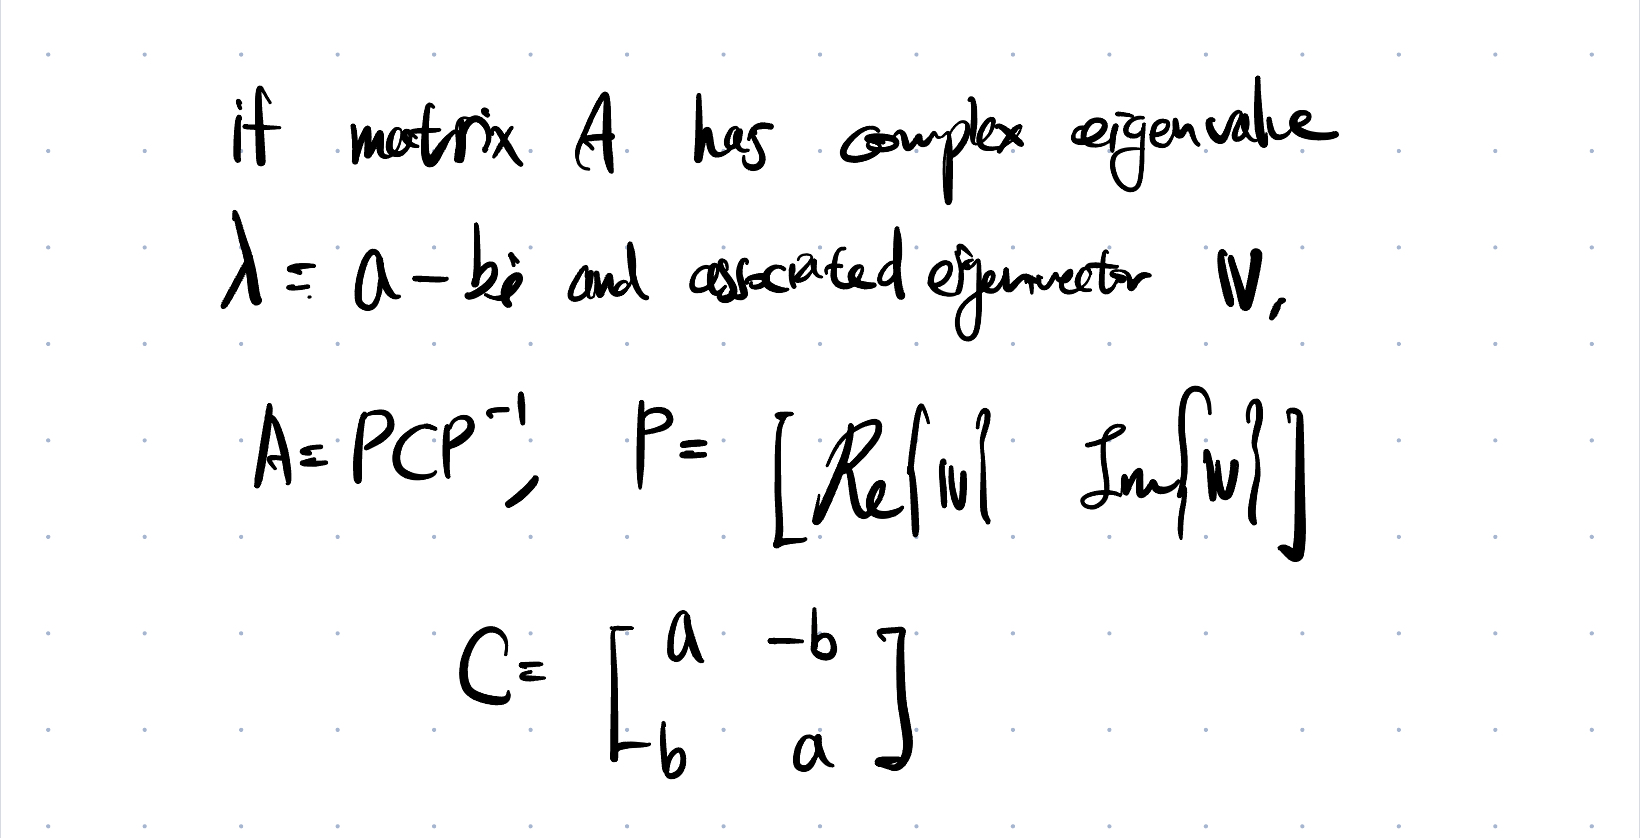 if matrix A has complex eigenvalue
λ = a - bi and associated eigenvector v,
A = PCP⁻¹, P = [Re{v} Im{v}]
C = [a -b
b a]